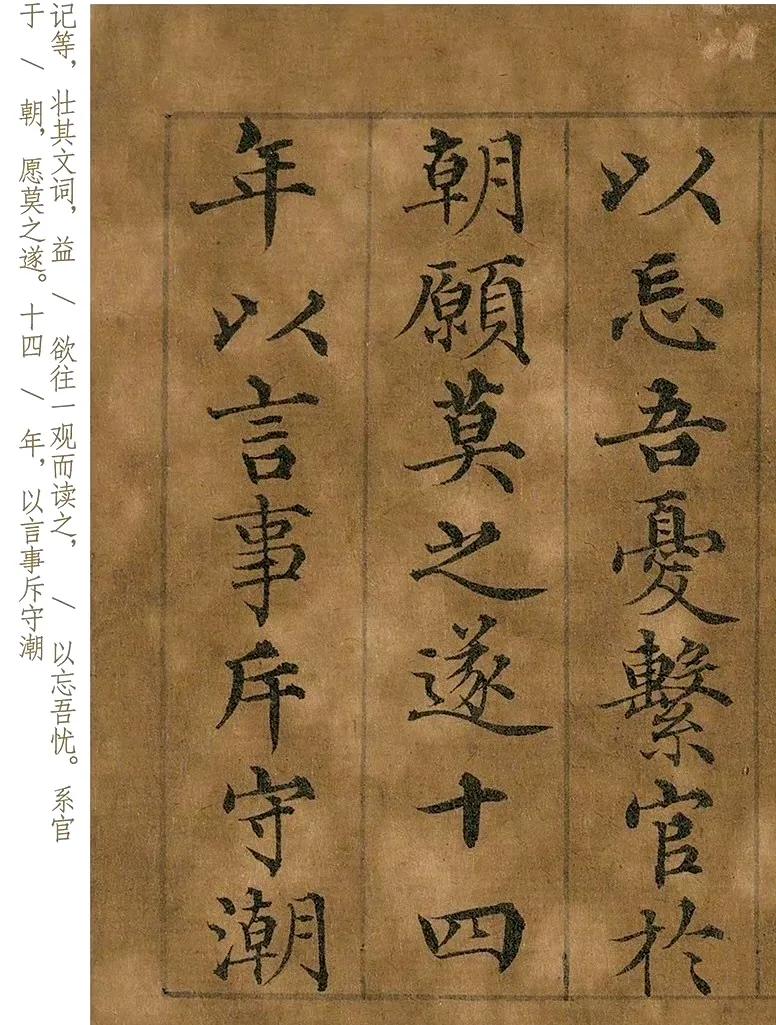 以忘吾憂繫官於
朝願莫之遂十四
年以言事斥守潮
记等，壮其文词，益 / 欲往一观而读之， / 以忘吾忧。系官
于 / 朝，愿莫之遂。十四 / 年，以言事斥守潮